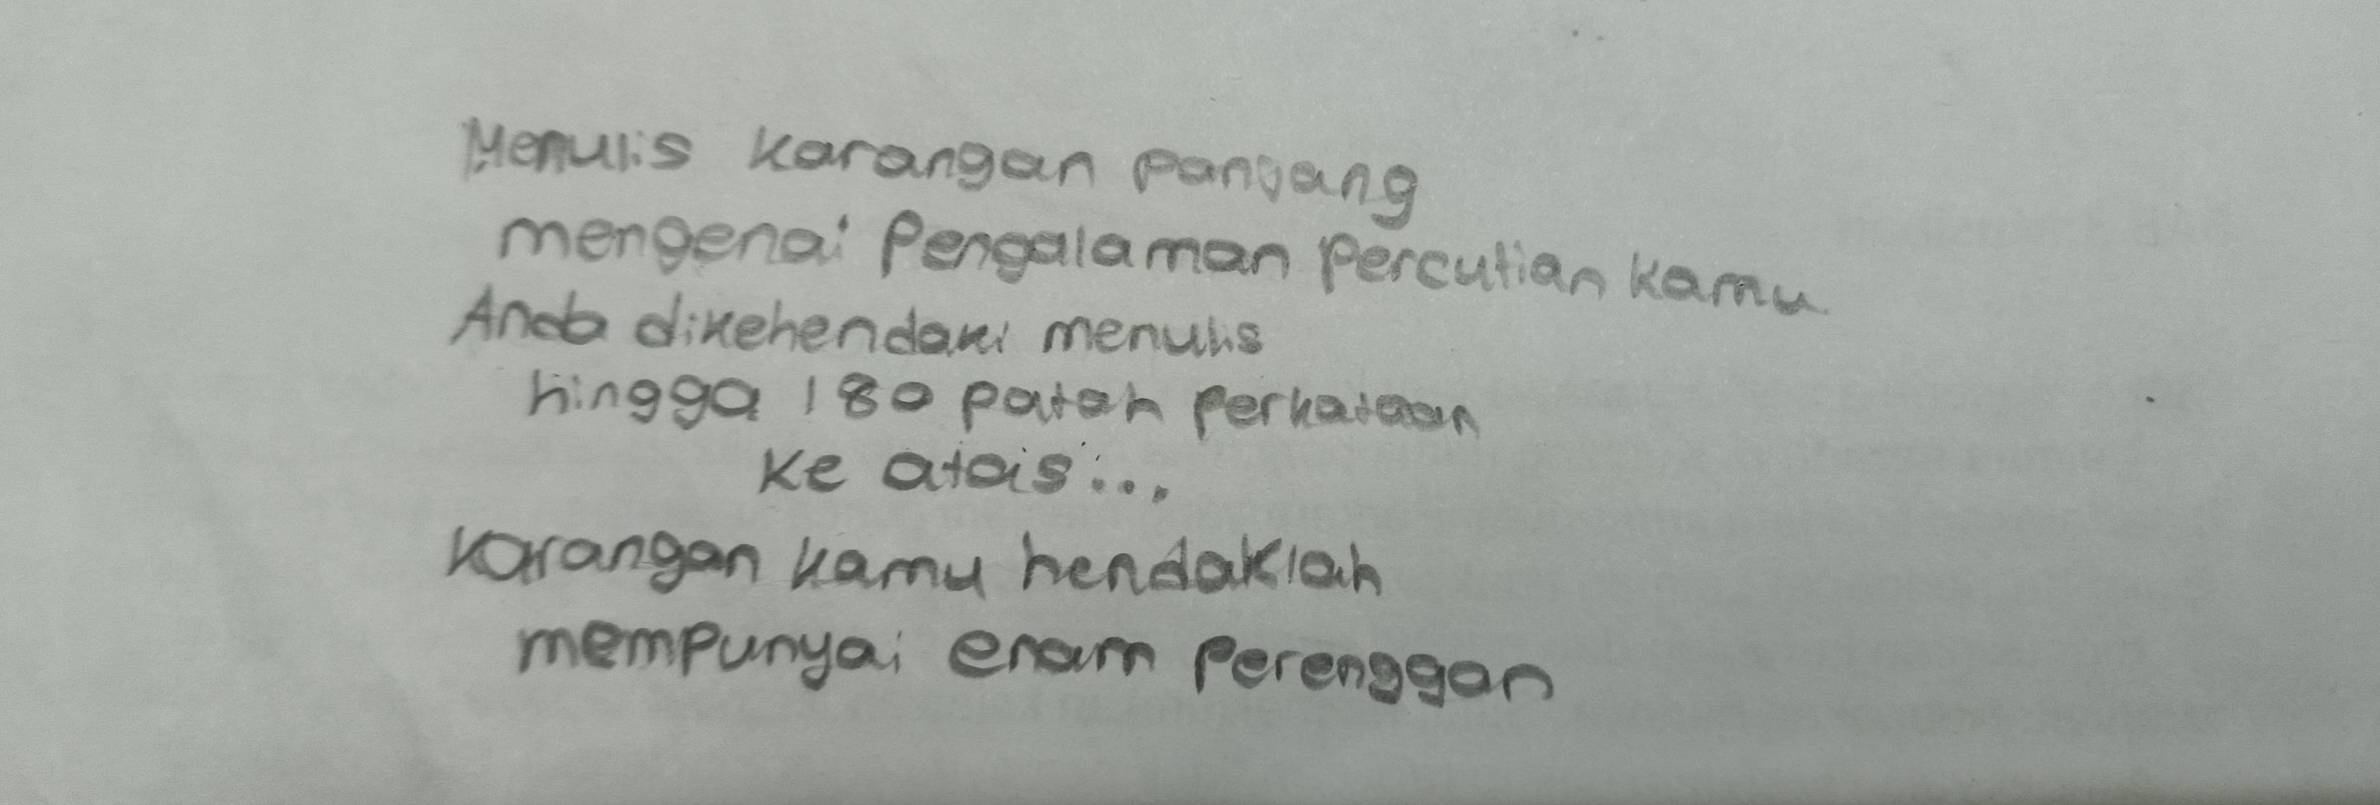 Menulis karangan panjang
mengenai Pengalaman percutian kamu
Anda dikehendaki menulis
hingga 180 patah perkataan
ke atas...
karangan kamu hendaklah
mempunyai enam perenggan